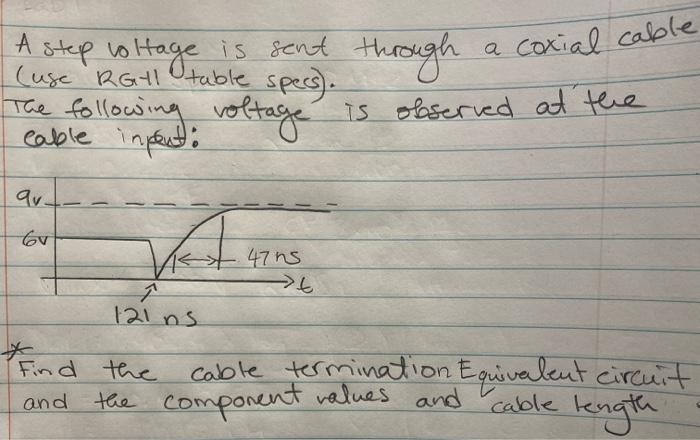 A step voltage is sent through a coxial cable
(use RG-11 table specs).
The following voltage is observed at the
cable input:
9v
6v
47ns
t
121 ns
* Find the cable termination Equivalent circuit
and the component values and cable length